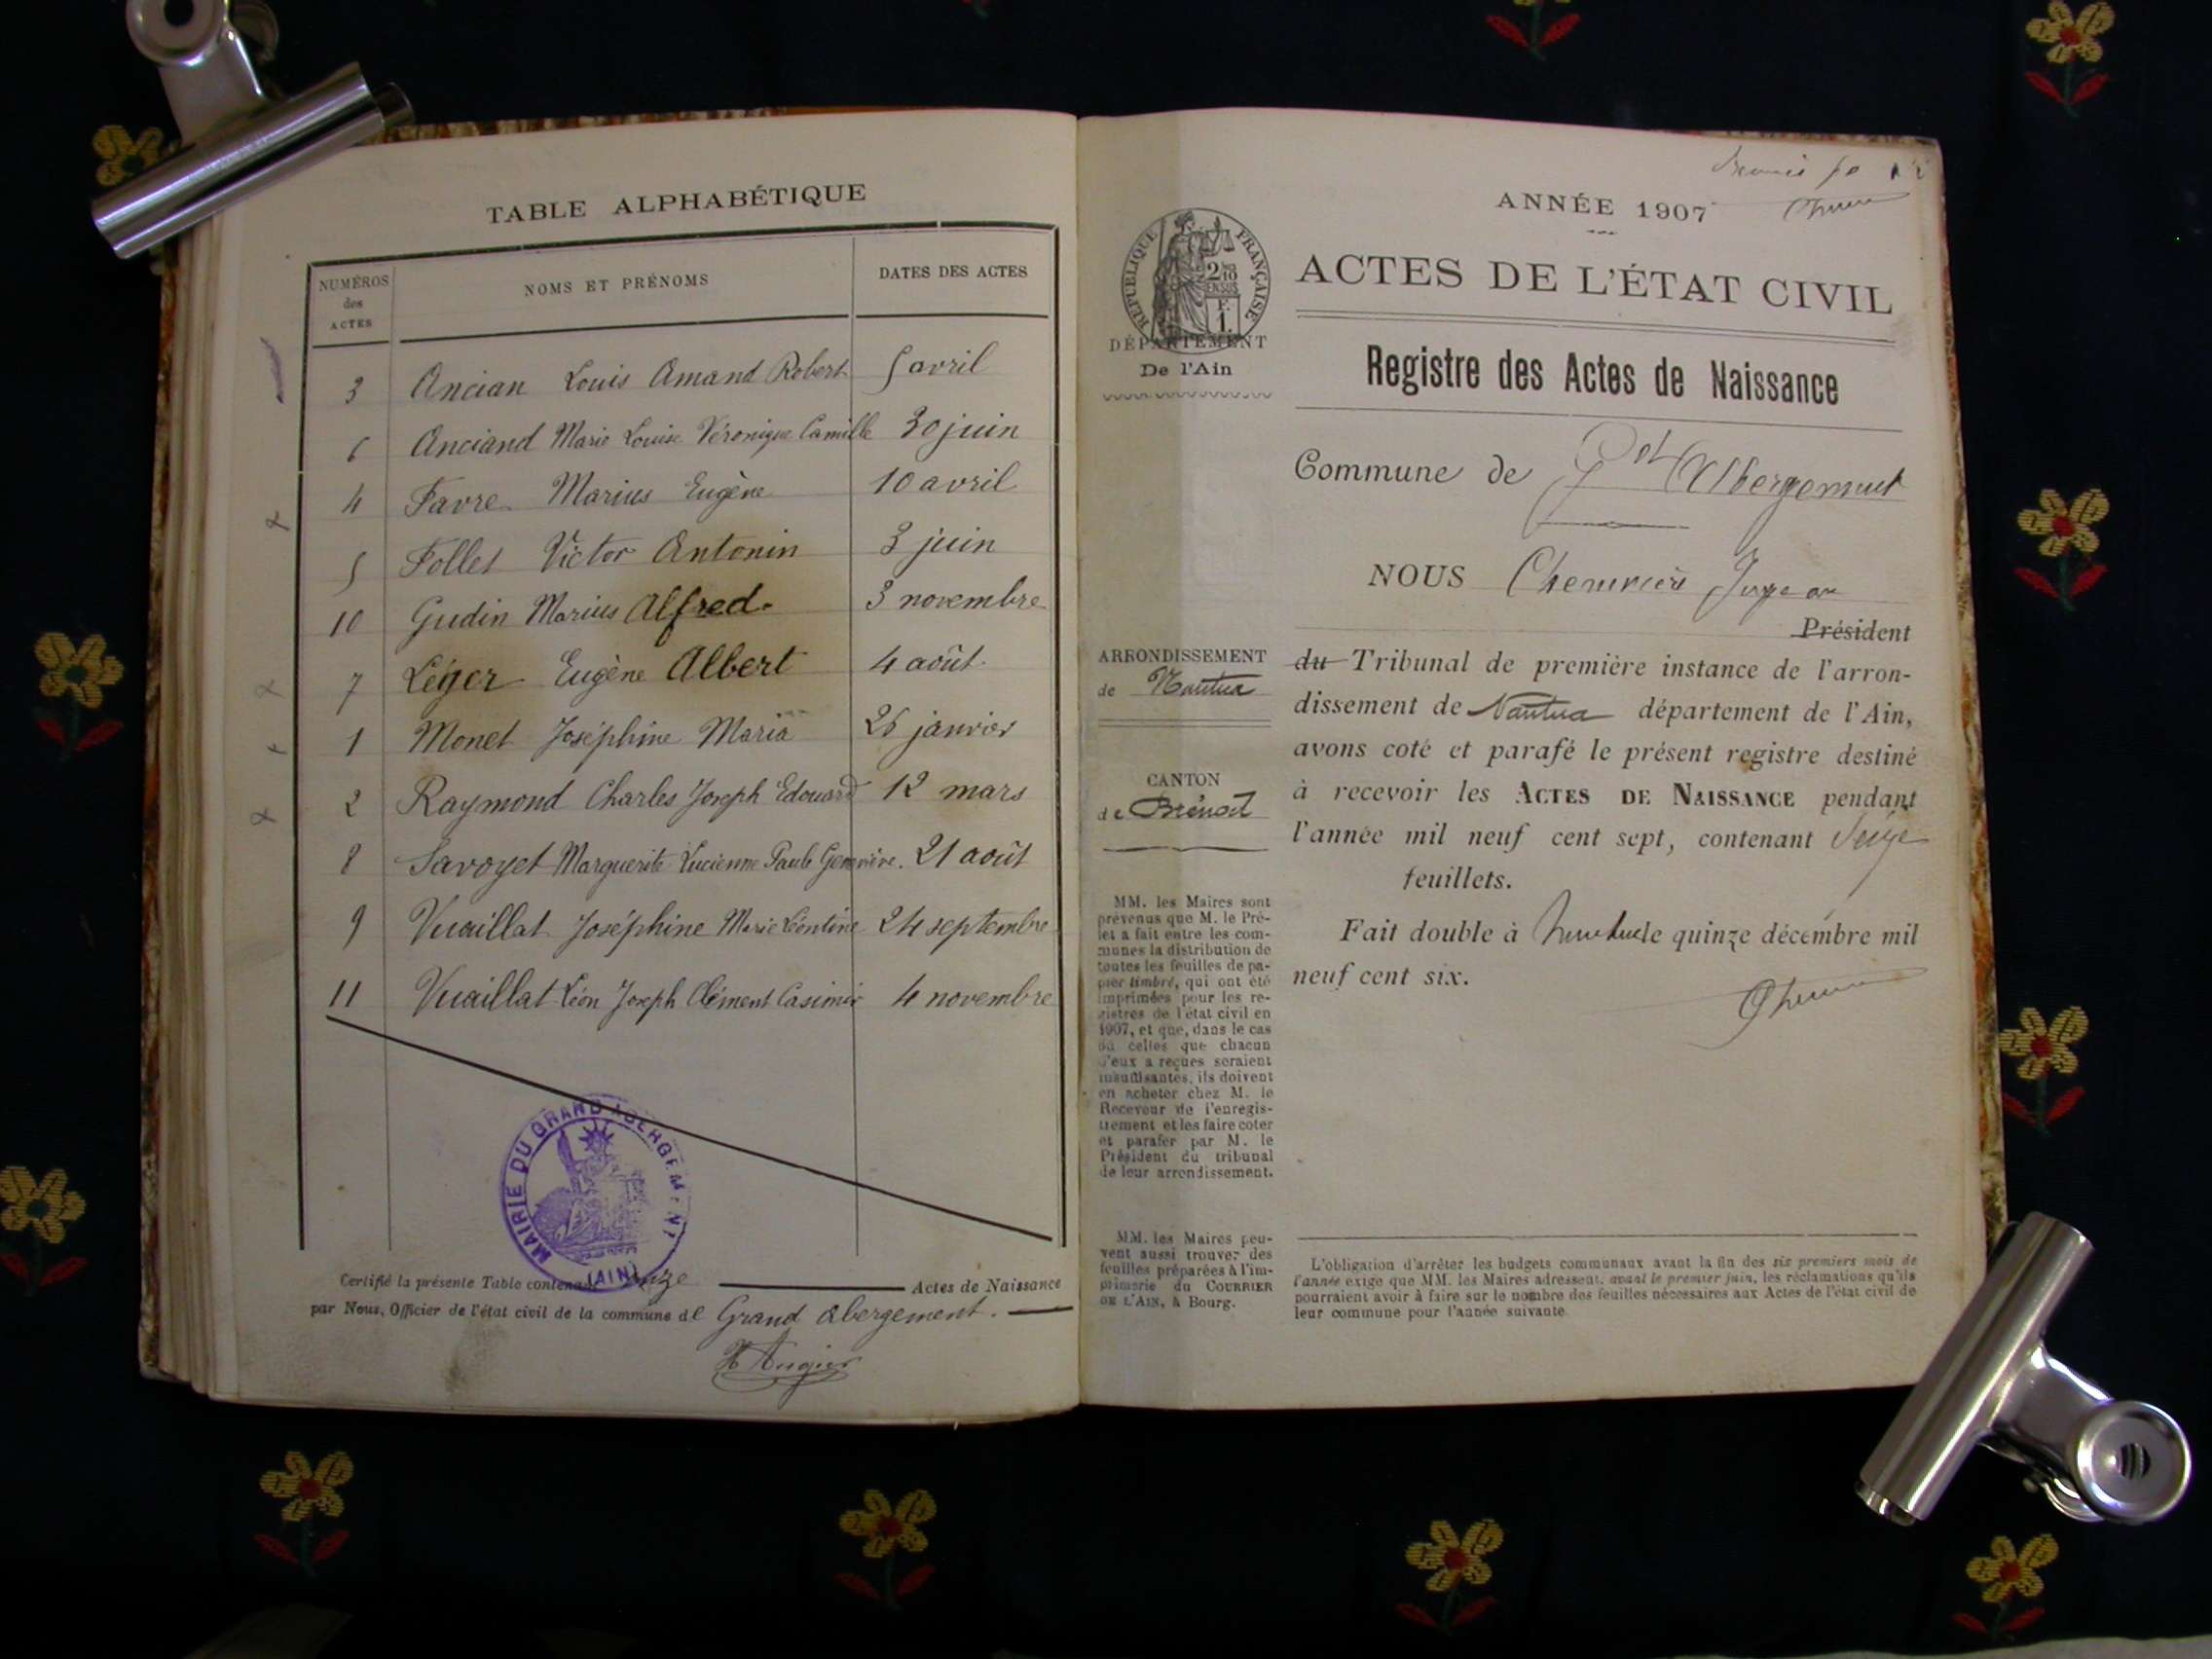 TABLE ALPHABÉTIQUE
NUMÉROS des ACTES
NOMS ET PRÉNOMS
DATES DES ACTES
3 Ancian Louis Amand Robert 5 avril
6 Anciand Marie Louise Véronique Camille 30 juin
4 Favre Marius Eugène 10 avril
5 Follet Victor Antonin 3 juin
10 Gudin Marius Alfred. 3 novembre
7 Léger Eugène Albert 4 août
1 Monet Joséphine Maria 26 janvier
2 Raymond Charles Joseph Edouard 12 mars
8 Savoyet Marguerite Lucienne Paule Geneviève. 21 août
9 Vuaillat Joséphine Marie Léontine 24 septembre
11 Vuaillat Léon Joseph Clément Casimir 4 novembre
MAIRIE DU GRAND ABERGEMENT
(AIN)
Certifié la présente Table contenant onze Actes de Naissance
par Nous, Officier de l'état civil de la commune de Grand Abergement.
ANNÉE 1907
RÉPUBLIQUE FRANÇAISE
2/10
EN SUS
F.
1.
ACTES DE L'ÉTAT CIVIL
DÉPARTEMENT
De l'Ain
Registre des Actes de Naissance
Commune de Gd Abergement
NOUS Juge au
Président
ARRONDISSEMENT
de Nantua
du Tribunal de première instance de l'arron-
dissement de Nantua département de l'Ain,
avons coté et parafé le présent registre destiné
CANTON
de Brénod
à recevoir les ACTES DE NAISSANCE pendant
l'année mil neuf cent sept, contenant Seize
feuillets.
Fait double à Nantua le quinze décembre mil
neuf cent six.
MM. les Maires sont
prévenus que M. le Pré-
fet a fait entre les com-
munes la distribution de
toutes les feuilles de pa-
pier timbré, qui ont été
imprimées pour les re-
gistres de l'état civil en
1907, et que, dans le cas
où celles que chacun
d'eux a reçues seraient
insuffisantes, ils doivent
en acheter chez M. le
Receveur de l'enregis-
trement et les faire coter
et parafer par M. le
Président du tribunal
de leur arrondissement.
MM. les Maires peu-
vent aussi trouver des
feuilles préparées à l'im-
primerie du COURRIER
DE L'AIN, à Bourg.
L'obligation d'arrêter les budgets communaux avant la fin des six premiers mois de
l'année exige que MM. les Maires adressent, avant le premier juin, les réclamations qu'ils
pourraient avoir à faire sur le nombre des feuilles nécessaires aux Actes de l'état civil de
leur commune pour l'année suivante.